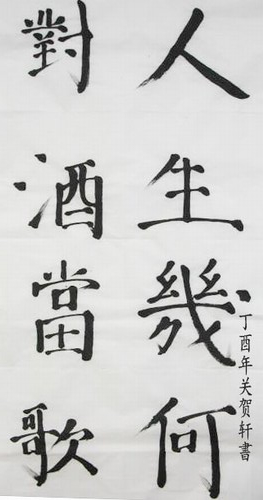 對酒當歌
人生幾何
丁酉年关贺轩書